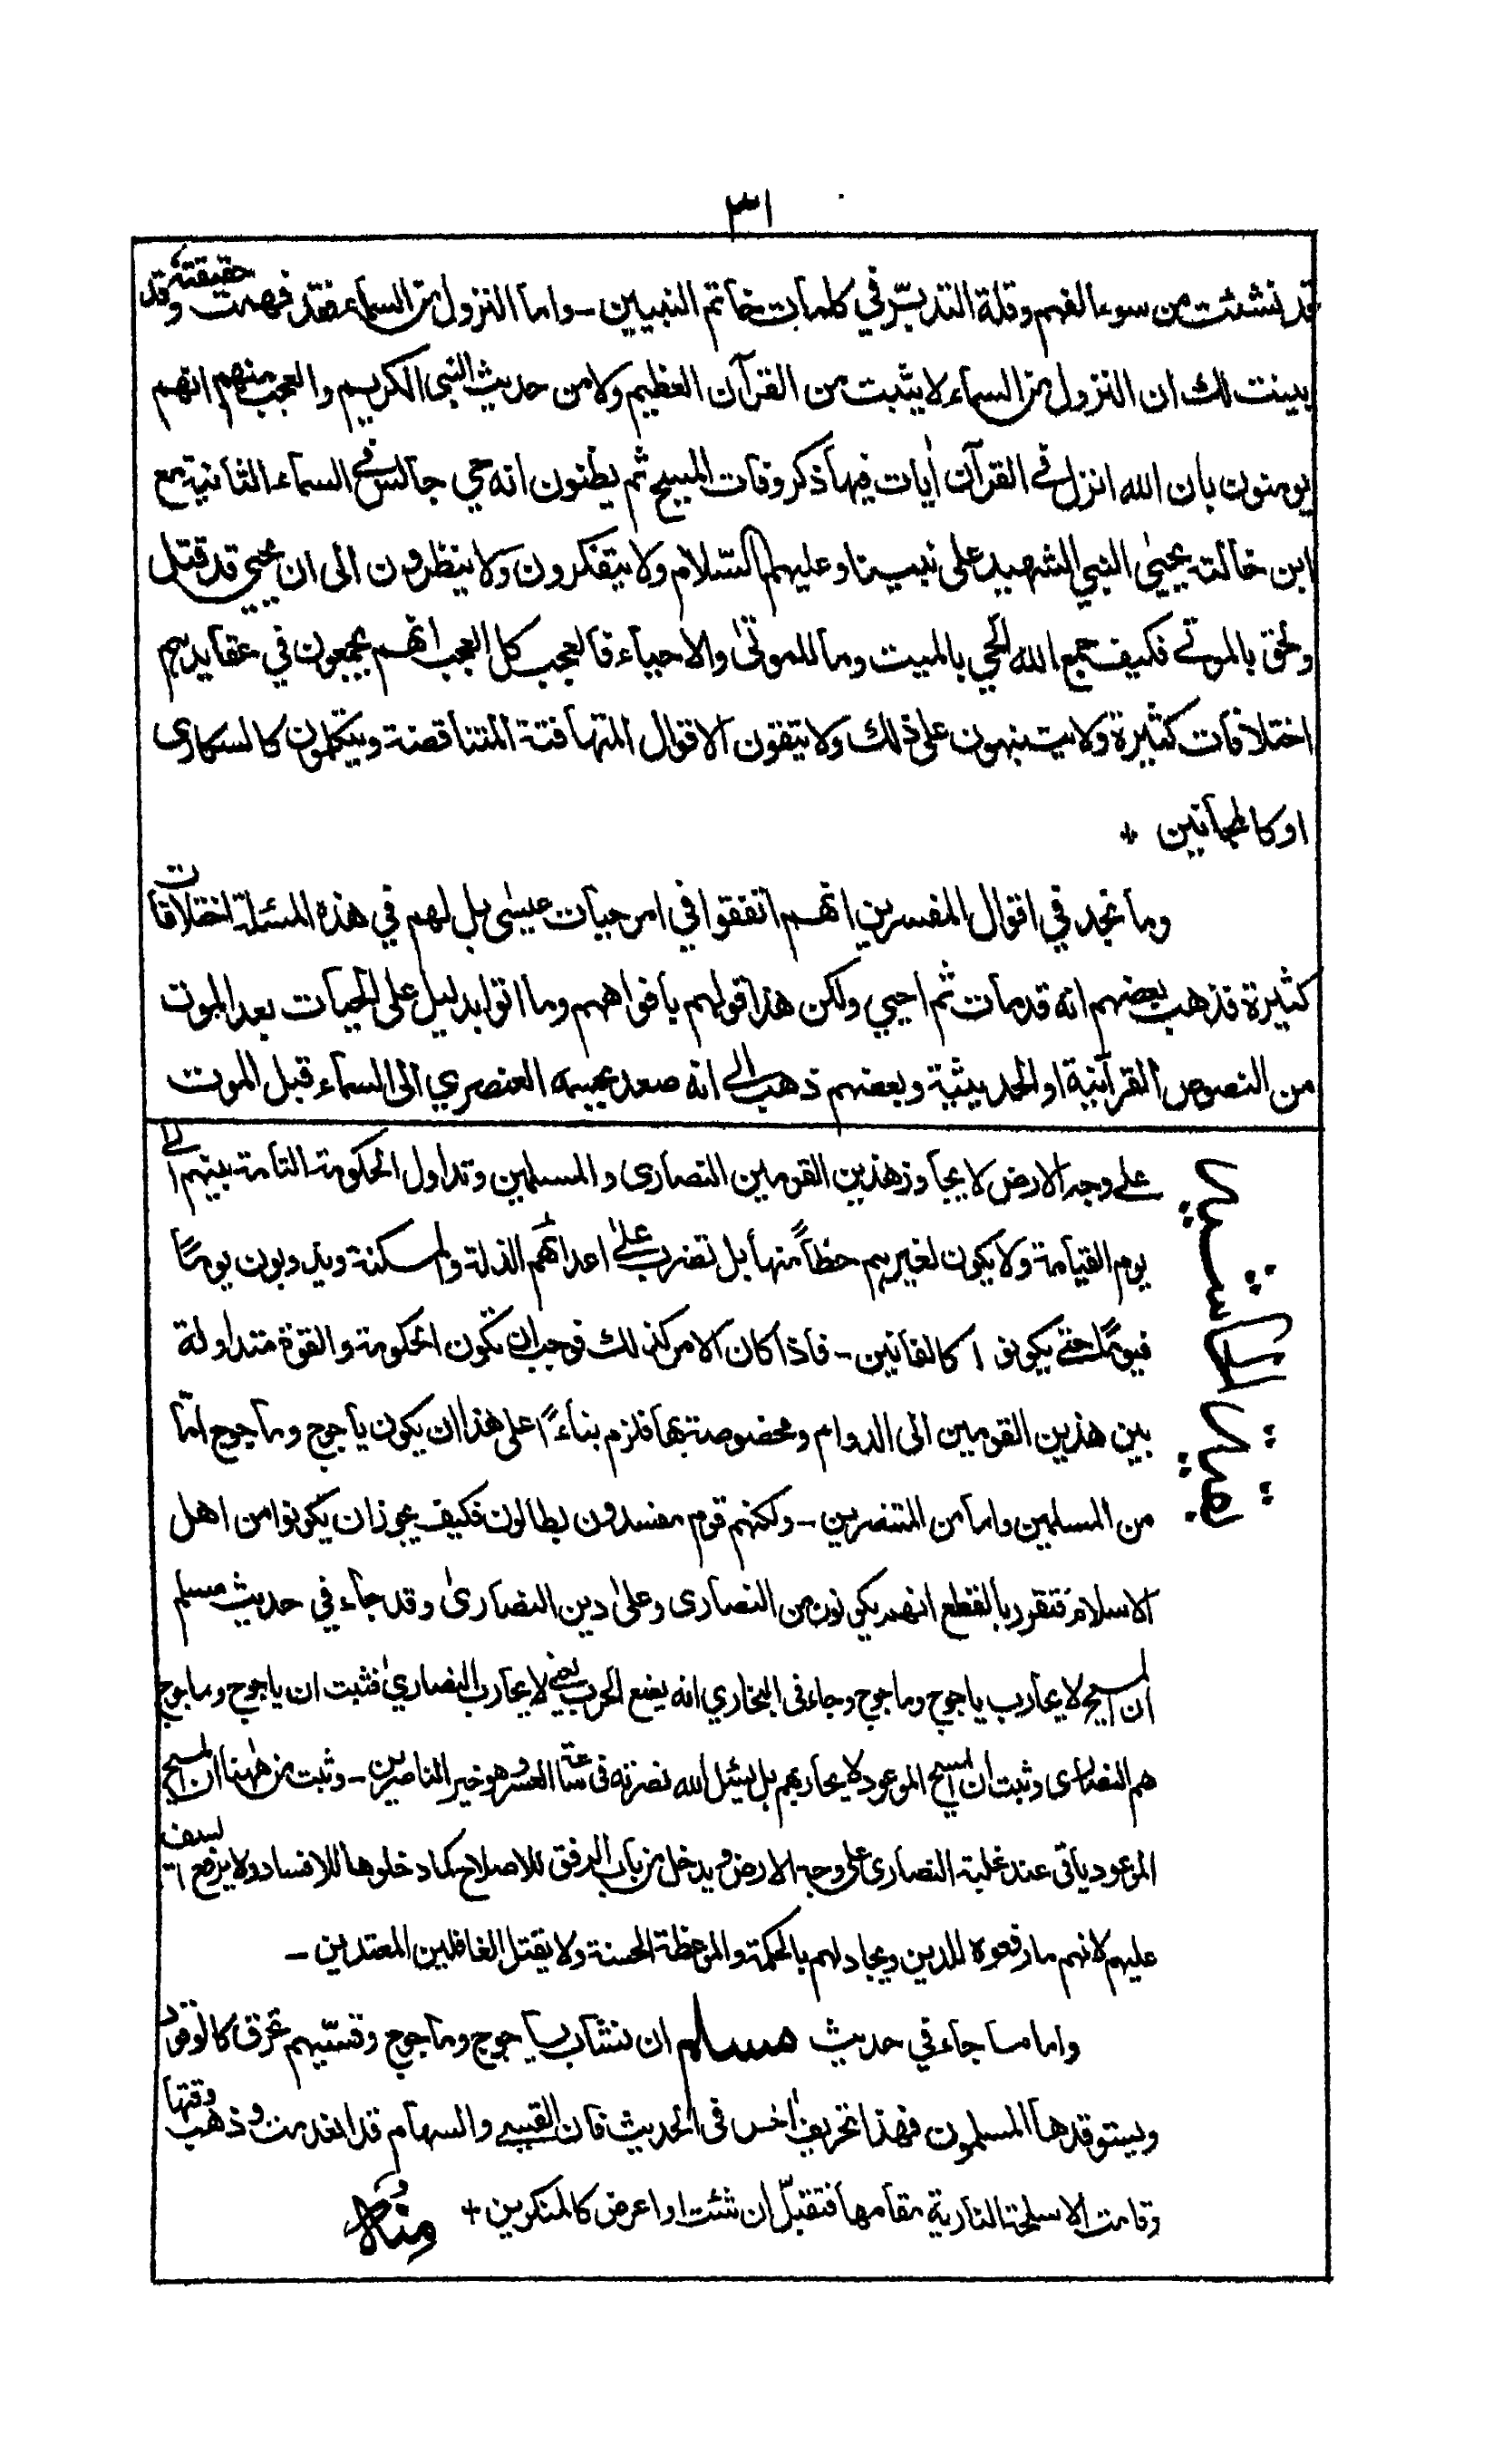 ٣١
قد نشئت من سوء الفهم وقلة التدبّر في كلمات خاتم النبيين ـ واما النزول من السماء فقد فهمت حقيقته وقد
بينت لك ان النزول من السماء لا يثبت من القرآن العظيم ولا من حديث النبي الكريم والعجب منهم انهم
يومنون بان الله انزل في القرآن اٰيات فيها ذكر وفات المسيح ثم يظنون انه حي جالس في السماء الثانية مع
ابن خالته يحيىٰ النبي الشهيد على نبينا وعليهم السّلام ولا يتفكرون ولا ينظرون الى ان يحيى قد قتل
ولحق بالموتى فكيف جمع الله الحي بالميت وما للموتىٰ والاحياء فالعجب كل العجب انهم يجمعون في عقايدهم
اختلافات كثيرة ولا يتنبهون على ذلك ولا يتقون الاقوال المتهافتة المتناقصنة ويتكلمون كالسكارى
او كالمجانين +
وما نجد في اقوال المفسرين انهم اتفقوا في امر حيات عيسىٰ بل لهم في هذه المسئلة اختلافات
كثيرة فذهب بعضهم انه قد مات ثم احيي ولكن هذا قولهم بافواههم وما اتوا بدليل على الحيات بعد الموت
من النصوص القرآنية او الحديثية وبعضهم ذهب الى انه صعد بجسمه العنصري الى السماء قبل الموت
على وجه الارض لا يجاوز هذين القومين النصارى والمسلمين وتداول الحكومة التامة بينهم الى
يوم القيامة ولا يكون لغيرهم حظاً منها بل تضرب علىٰ اعدائهم الذلة والمسكنة ويذوبون يومًا
فيومًا حتى يكونوا كالفانين ـ فاذا كان الامر كذلك فوجب ان تكون الحكومة والقوة متداولة
بين هذين القومين الى الدوام ومخصوصة بها فلزم بناءً اعلى هذا ان يكون ياجوج وماجوج امّا
من المسلمين واما من المتنصرين ـ ولكنهم قوم مفسدون بطالون فكيف يجوز ان يكونوا من اهل
الاسلام فتقرر بالقطع انهم يكونون من النصارى وعلىٰ دين النصارىٰ وقد جاء في حديث مسلم
ان المسيح لا يحارب ياجوج وماجوج وجاء في البخاري انه يضع الحرب يعني لا يحارب النصاريٰ فثبت ان ياجوج وماجوج
هم النصارى وثبت ان المسيح الموعود لا يحاربهم بل يسئل الله نصرته في ساعة العسر وهو خير الناصرين ـ وثبت من ههنا ان المسيح
الموعود ياتى عند غلبة النصارى على وجه الارض ويدخل من باب الرفق للاصلاح كما دخلوها للافساد ولا يرفع السيف
عليهم لانهم ما رفعوه للدين ويجادلهم بالحكمة والموعظة الحسنة ولا يقتل الغافلين المعتدين ـ
واما ما جاء في حديث مسلم ان نشاب ياجوج وماجوج وقسيّهم تحرق كالوقود
ويستوقدها المسلمون فهذا تحريف اٰخر في الحديث فان القسي والسهام قد انعدمت وذهب وقتها
وقامت الاسلحة النارية مقامها فتقبّل ان شئت او اعرض كالمنكرين + منه